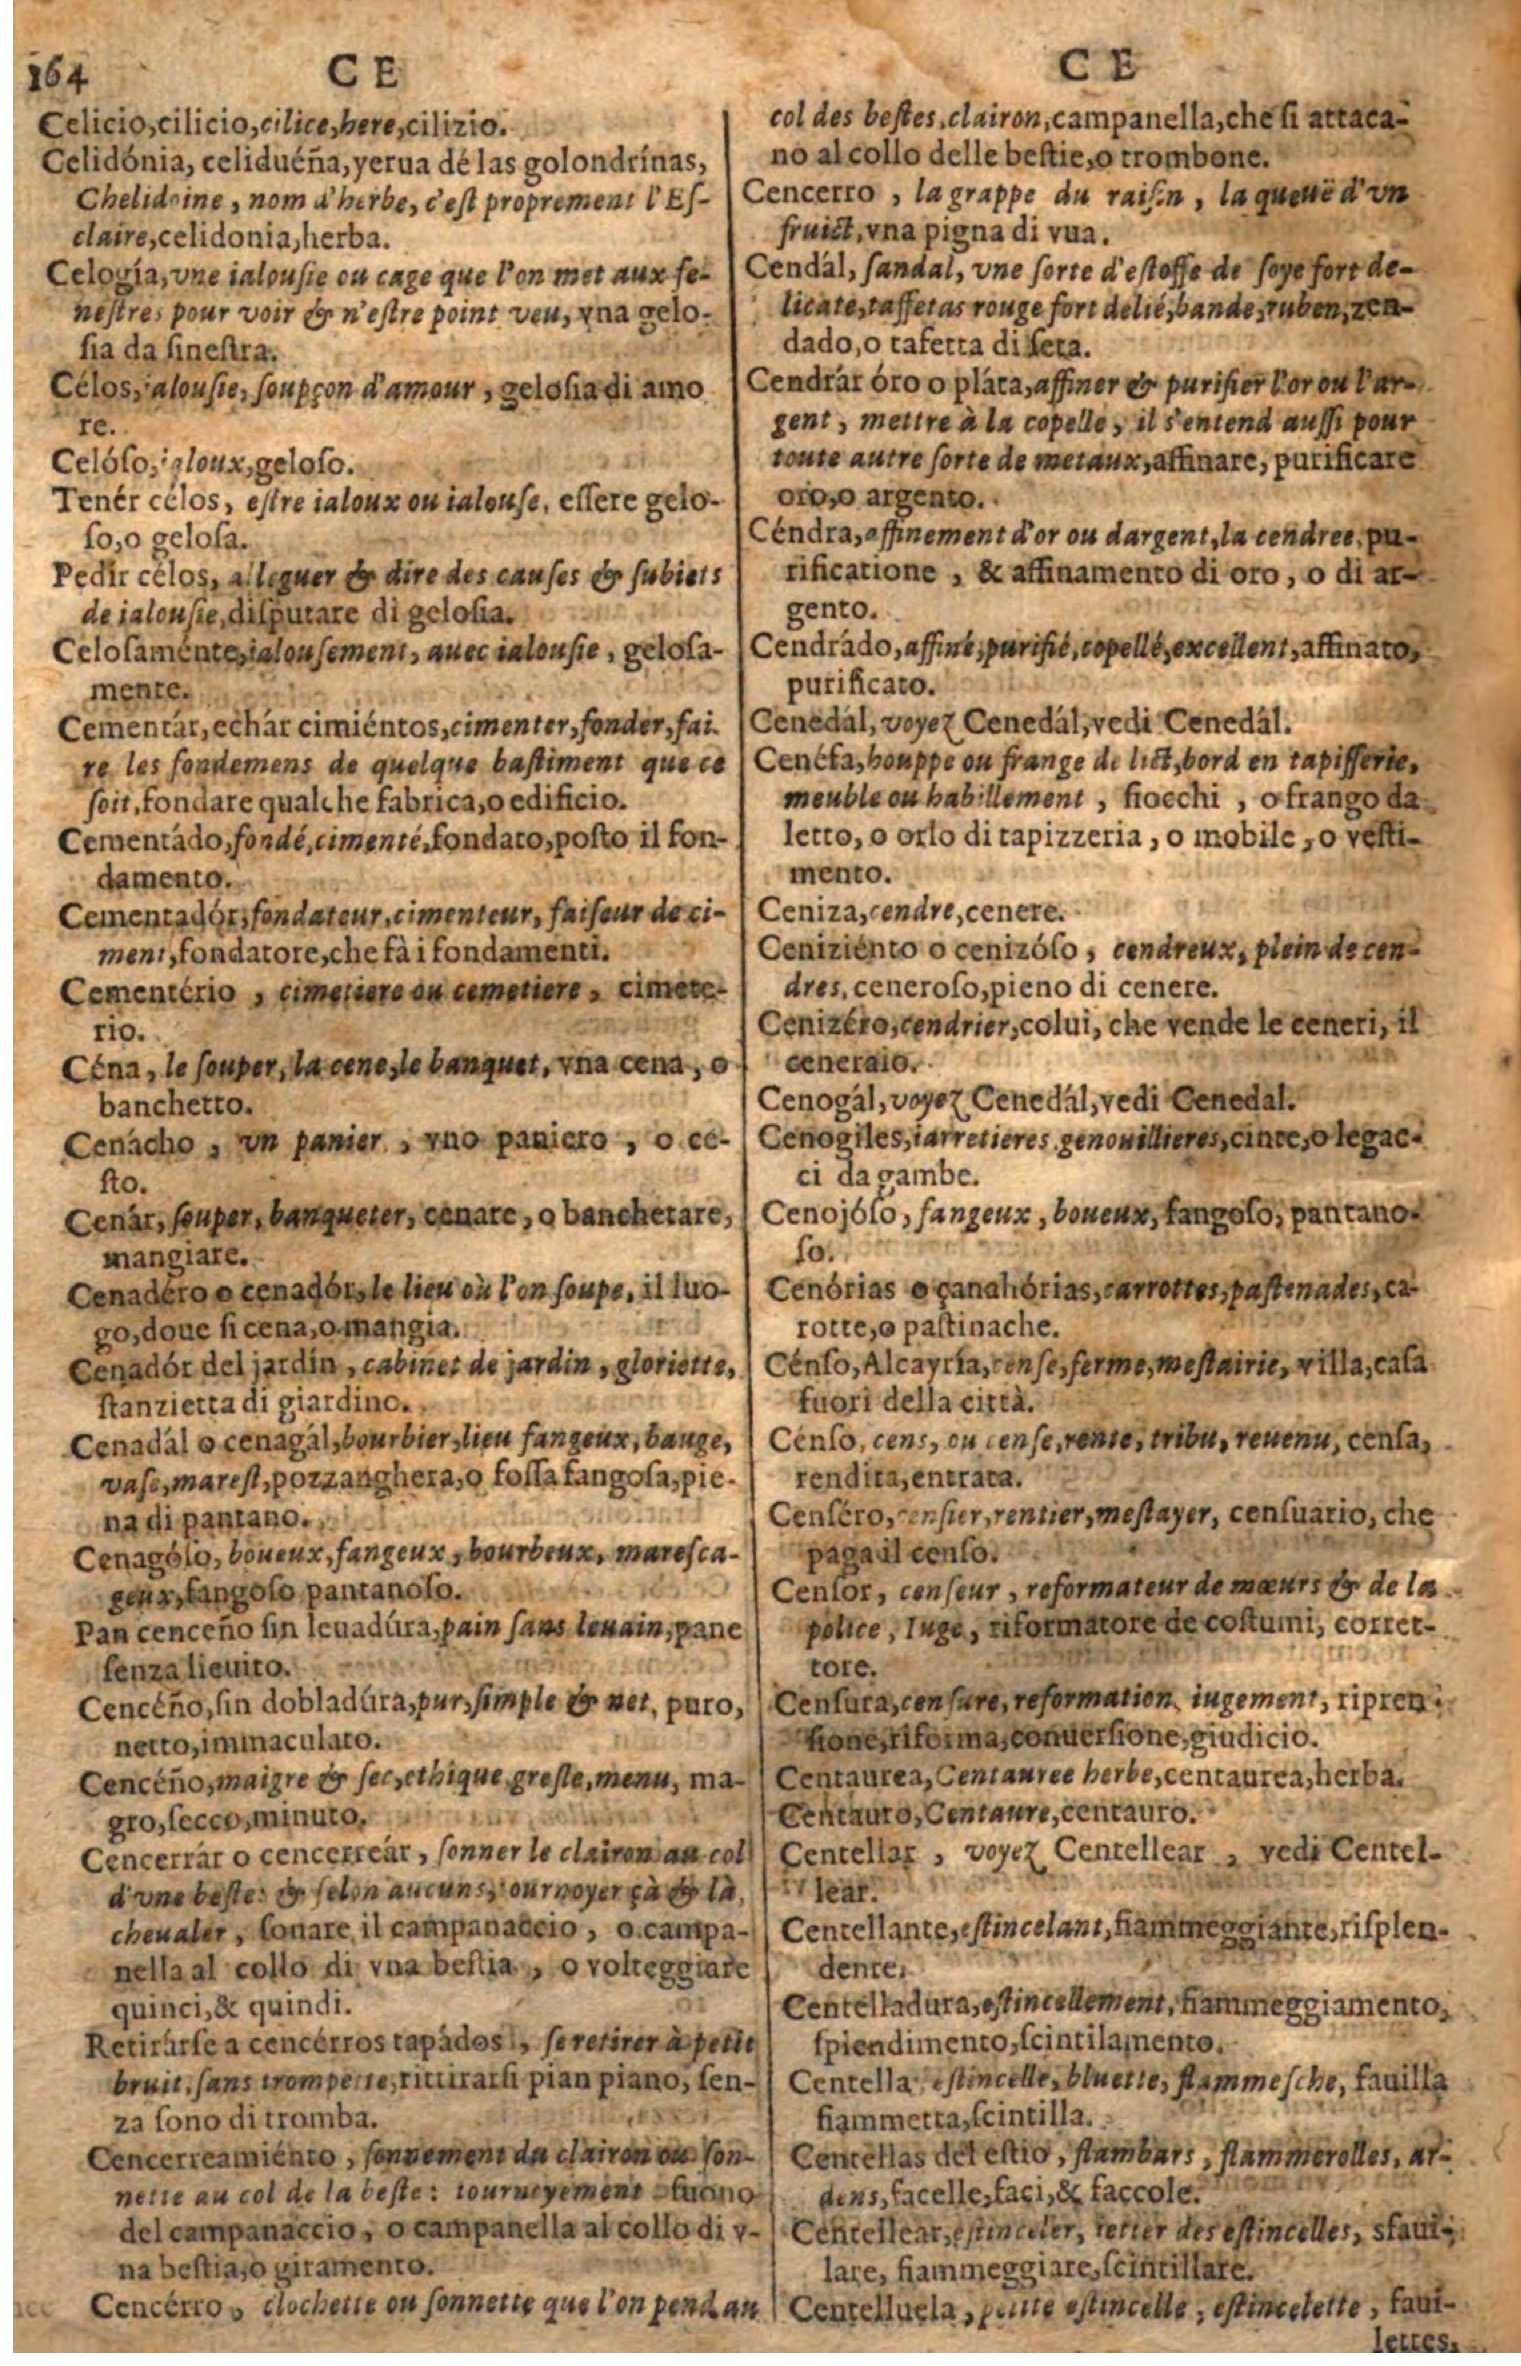 164
CE
Celicio,cilicio,cilice,here,cilizio.
Celidónia, celiduéña,yerua dé las golondrínas,
Chelidoine, nom d'herbe, c'est proprement l'Es-
claire,celidonia,herba.
Celogía,vne ialousie ou cage que l'on met aux fe-
nestres pour voir & n'estre point veu, vna gelo-
sia da finestra.
Célos, ialousie, soupçon d'amour, gelosia di amo
re.
Celóso, ialoux,geloso.
Tenér célos, estre ialoux ou ialouse, essere gelo-
so,o gelosa.
Pedír célos, alleguer & dire des causes & subiets
de ialousie,disputare di gelosia.
Celosaménte,ialousement, auec ialousie, gelosa-
mente.
Cementár,echár cimiéntos,cimenter,fonder,fai-
re les fondemens de quelque bastiment que ce
soit,fondare qualche fabrica,o edificio.
Cementádo,fondé,cimenté,fondato,posto il fon-
damento.
Cementadór,fondateur,cimenteur, faiseur de ci-
ment,fondatore,che fà i fondamenti.
Cementério, cimetiere ou cemetiere, cimete-
rio.
Céna, le souper, la cene,le banquet, vna cena, o
banchetto.
Cenácho, vn panier, vno paniero, o ce-
sto.
Cenár, souper, banqueter, cenare, o banchetare,
mangiare.
Cenadéro o cenadór, le lieu où l'on soupe, il luo-
go,doue si cena,o mangia.
Cenadór del jardín, cabinet de jardin, gloriette,
stanzietta di giardino.
Cenadál o cenagál,bourbier,lieu fangeux, bauge,
vase,marest,pozzanghera,o fossa fangosa,pie-
na di pantano.
Cenagóso, boueux,fangeux, bourbeux, maresca-
geux,fangoso pantanoso.
Pan cenceño sin leuadúra,pain sans leuain,pane
senza lieuito.
Cencéño,sin dobladúra,pur,simple & net, puro,
netto,immaculato.
Cencéño,maigre & sec,ethique,gresle,menu, ma-
gro,secco,minuto.
Cencerrár o cencerreár, sonner le clairon au col
d'vne beste: & selon aucuns, tournoyer çà & là,
cheualer, sonare il campanaccio, o campa-
nella al collo di vna bestia, o volteggiare
quinci,& quindi.
Retirárse a cencérros tapádos, se retirer à petit
bruit,sans trompette,rittirarsi pian piano, sen-
za sono di tromba.
Cencerreamiénto, sonnement du clairon ou son-
nette au col de la beste: tournoyement suono
del campanaccio, o campanella al collo di v-
na bestia,o giramento.
Cencérro, clochette ou sonnette que l'on pend au
CE
col des bestes,clairon,campanella,che si attaca-
no al collo delle bestie,o trombone.
Cencerro, la grappe du raisin, la queuë d'vn
fruict,vna pigna di vua.
Cendál, sandal, vne sorte d'estoffe de soye fort de-
licate,taffetas rouge fort delié,bande,ruben,zen-
dado,o tafetta di seta.
Cendrár óro o pláta,affiner & purifier l'or ou l'ar-
gent, mettre à la copelle, il s'entend aussi pour
toute autre sorte de metaux,affinare, purificare
oro,o argento.
Céndra,affinement d'or ou dargent,la cendree,pu-
rificatione, & affinamento di oro, o di ar-
gento.
Cendrádo,affiné,purifié,copellé,excellent,affinato,
purificato.
Cenedál, voyez Cenedál,vedi Cenedál.
Cenéfa,houppe ou frange de lict,bord en tapisserie,
meuble ou habillement, fiocchi, o frango da
letto, o orlo di tapizzeria, o mobile, o vesti-
mento.
Ceniza,cendre,cenere.
Ceniziénto o cenizóso, cendreux, plein de cen-
dres,ceneroso,pieno di cenere.
Cenizéro,cendrier,colui, che vende le ceneri, il
ceneraio.
Cenogál,voyez Cenedál,vedi Cenedal.
Cenogiles,iarretieres,genouillieres,cinte,o legac-
ci da gambe.
Cenojóso, fangeux, boueux, fangoso, pantano-
so.
Cenórias o çanahórias,carrottes,pastenades, ca-
rotte,o pastinache.
Cénso,Alcayría,cense,ferme,mestairie, villa,casa
fuori della città.
Cénso, cens, ou cense,rente, tribu, reuenu, censa,
rendita,entrata.
Censéro,censier,rentier,mestayer, censuario, che
paga il censo.
Censor, censeur, reformateur de mœurs & de la
police, Iuge, riformatore de costumi, corret-
tore.
Censura,censure,reformation, iugement, ripren-
sione,riforma,conuersione,giudicio.
Centaurea,Centauree herbe,centaurea,herba.
Centauro,Centaure,centauro.
Centellar, voyez Centellear, vedi Centel-
lear.
Centellante,estincelant,fiammeggiante,risplen-
dente.
Centelladura,estincellement,fiammeggiamento,
spiendimento,scintilamento.
Centella estincelle, bluette, flammesche, fauilla
fiammetta,scintilla.
Centellas del estio, flambars, flammerolles, ar-
dens,facelle,faci,& faccole.
Centellear,estinceler, ietter des estincelles, sfaui-
lare, fiammeggiare,scintillare.
Centelluela, petite estincelle, estincelette, faui-
lettes,